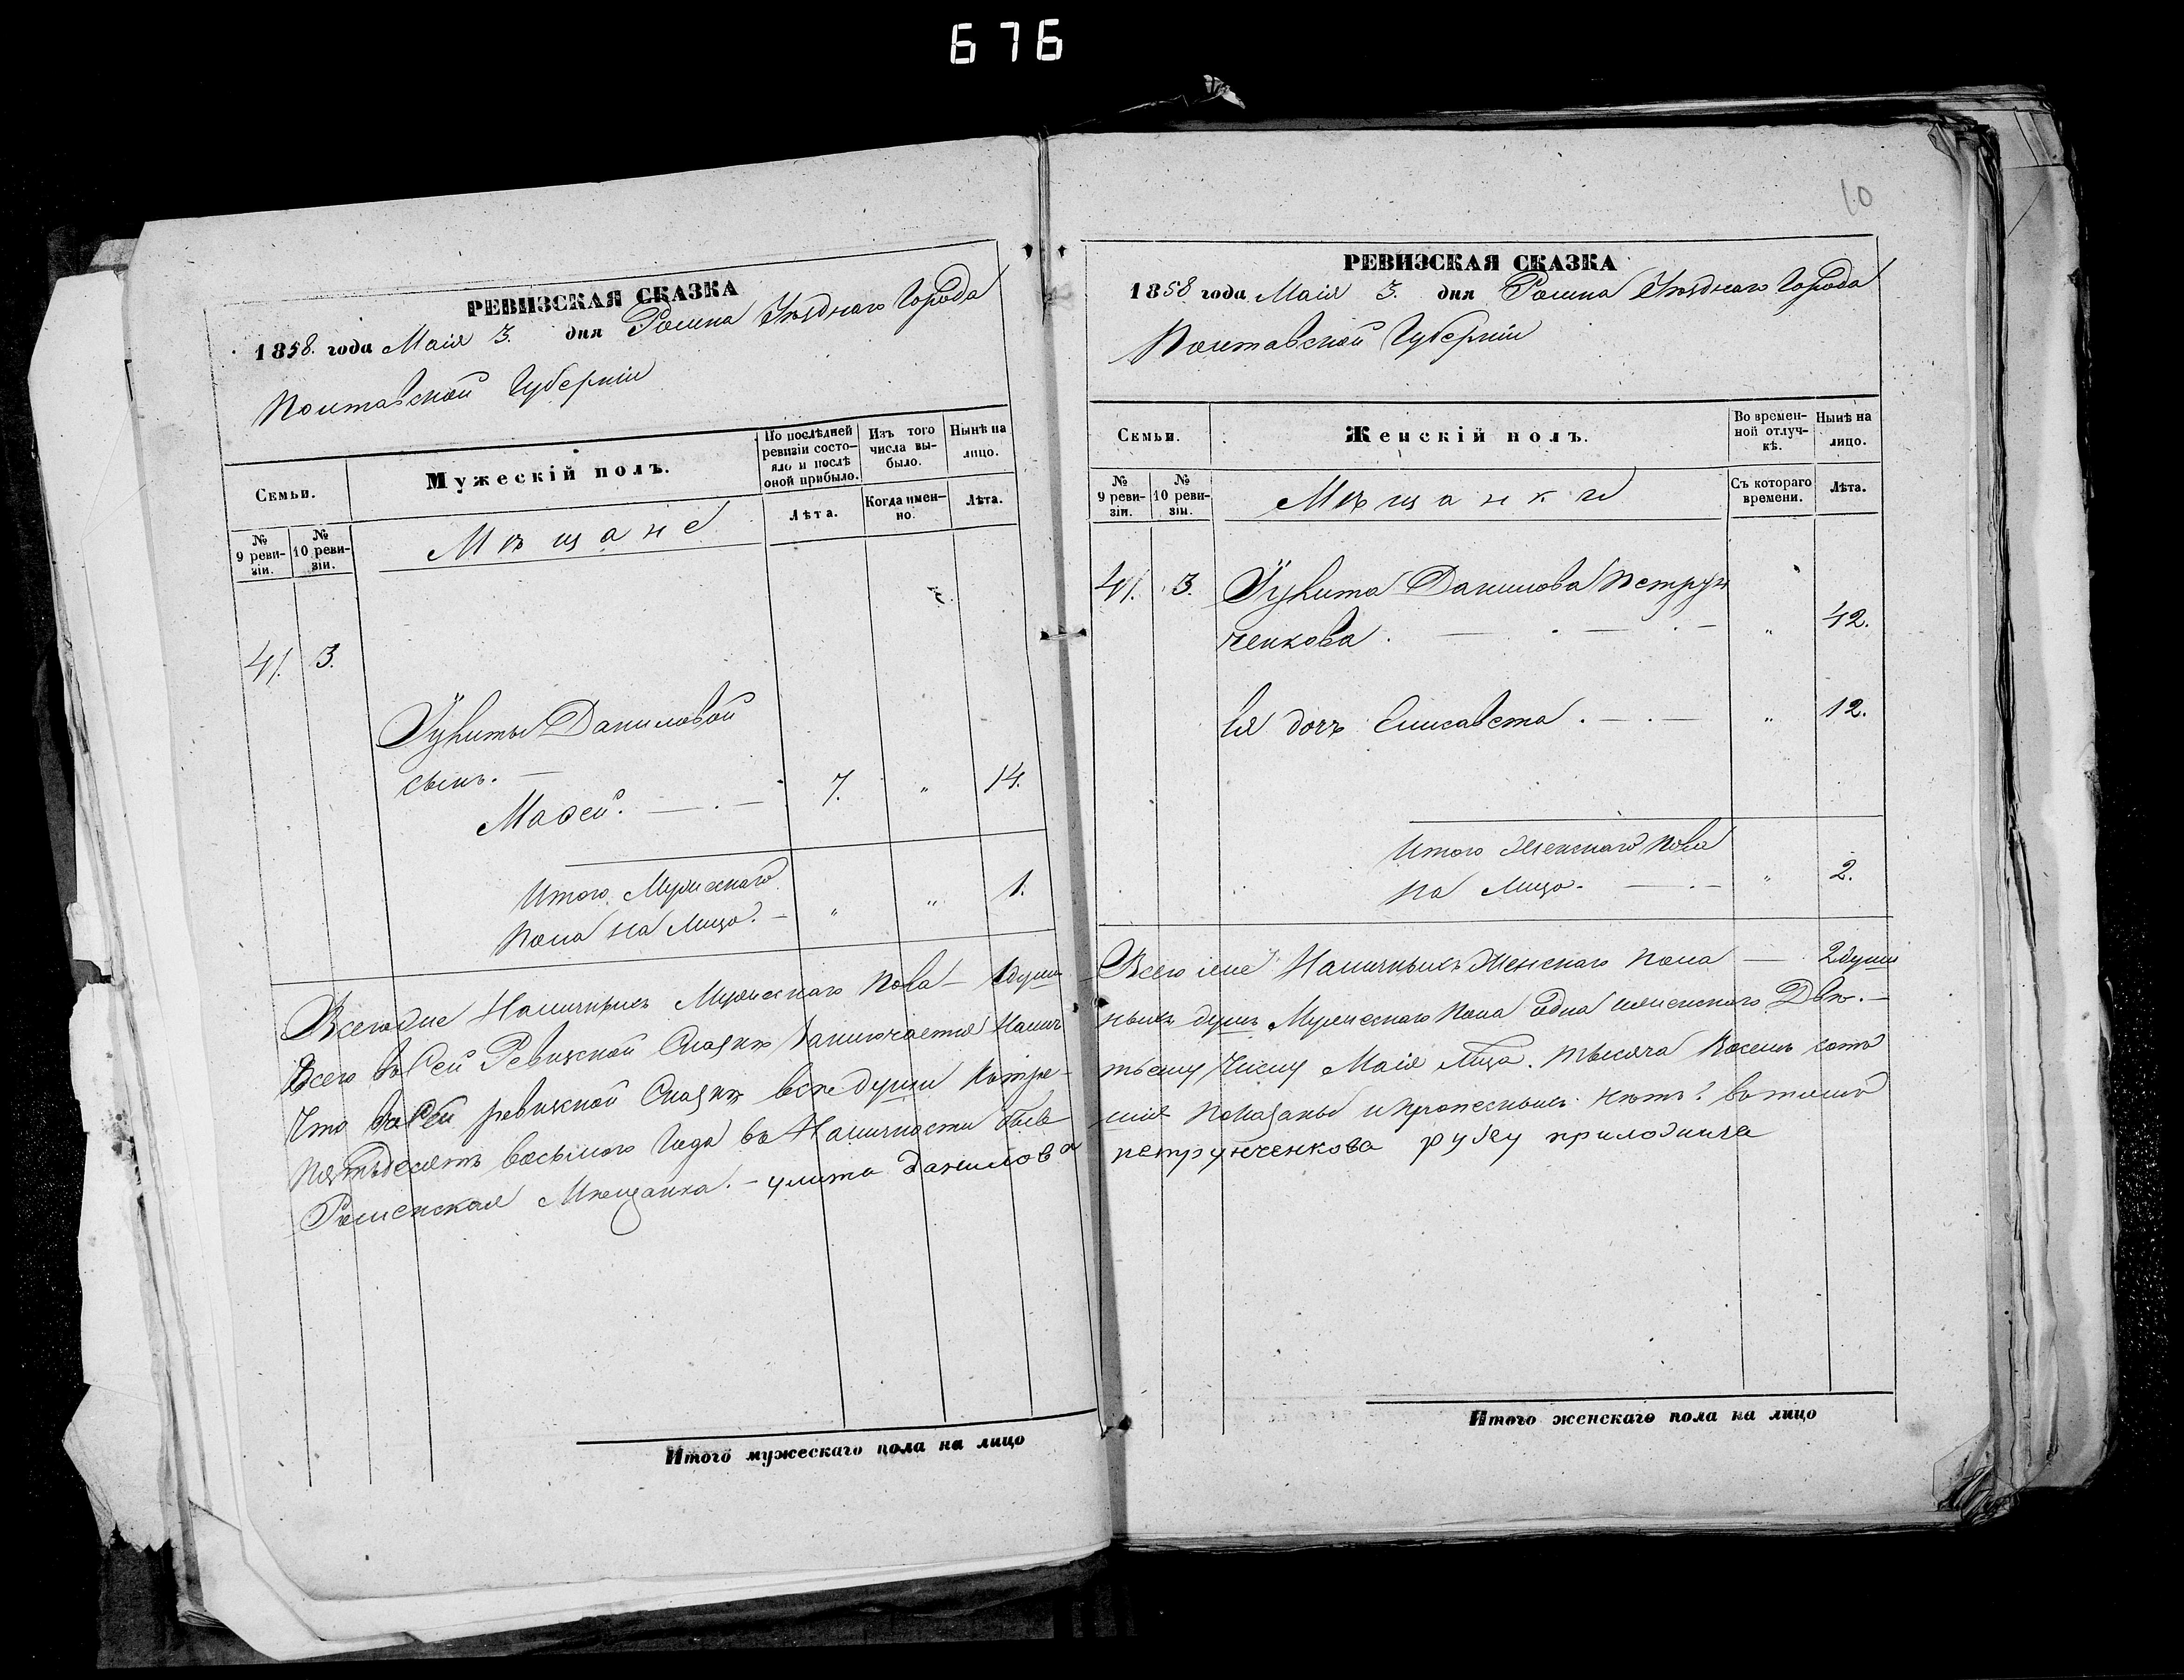 676
РЕВИЗСКАЯ СКАЗКА
1858. года Маія 3. дня Ромна Уѣзднаго Города
Полтавской Губерніи
Семьи.
Мужескій полъ.
По послѣдней ревизіи состояло и послѣ оной прибыло.
Изъ того числа выбыло.
Нынѣ на лицо.
№ 9 ревизіи.
№ 10 ревизіи.
Мѣщане
Лѣта.
Когда именно.
Лѣта.
41. 3.
Даниловой
сынъ.
Мафей. 7. „ 14.
Итого Мужескаго
пола на лицо. „ „ 1.
Всего Наличныхъ Мужескаго пола 1 душа
Всего въ Сей Ревизской Сказкѣ заключается Налич
Что въ Сей ревизской Сказкѣ все души
пятьдесятъ восьмого Года въ Наличности
Роменская Мѣщанка. улита данилова
Итого мужескаго пола на лицо
10
РЕВИЗСКАЯ СКАЗКА
1858 года Маія 3. дня Ромна Уѣзднаго Города
Полтавской Губерніи
Семьи.
Женскій полъ.
Во временной отлучкѣ.
Нынѣ на лицо.
№ 9 ревизіи.
№ 10 ревизіи.
Мѣщанки
Съ котораго времени.
Лѣта.
41. 3. Данилова Петрун
ченкова. „ 42.
Ея дочь Елисавета. „ 12.
Итого Женскаго пола
на лицо. „ 2.
Всего Наличныхъ Женскаго пола 2 души
ныхъ душъ Мужескаго пола одна Двѣ.
тьему Числу Маія тысяча Восемь сотъ
показаны и прописныхъ нѣтъ? въ томъ
петрунченкова руку приложила
Итого женскаго пола на лицо